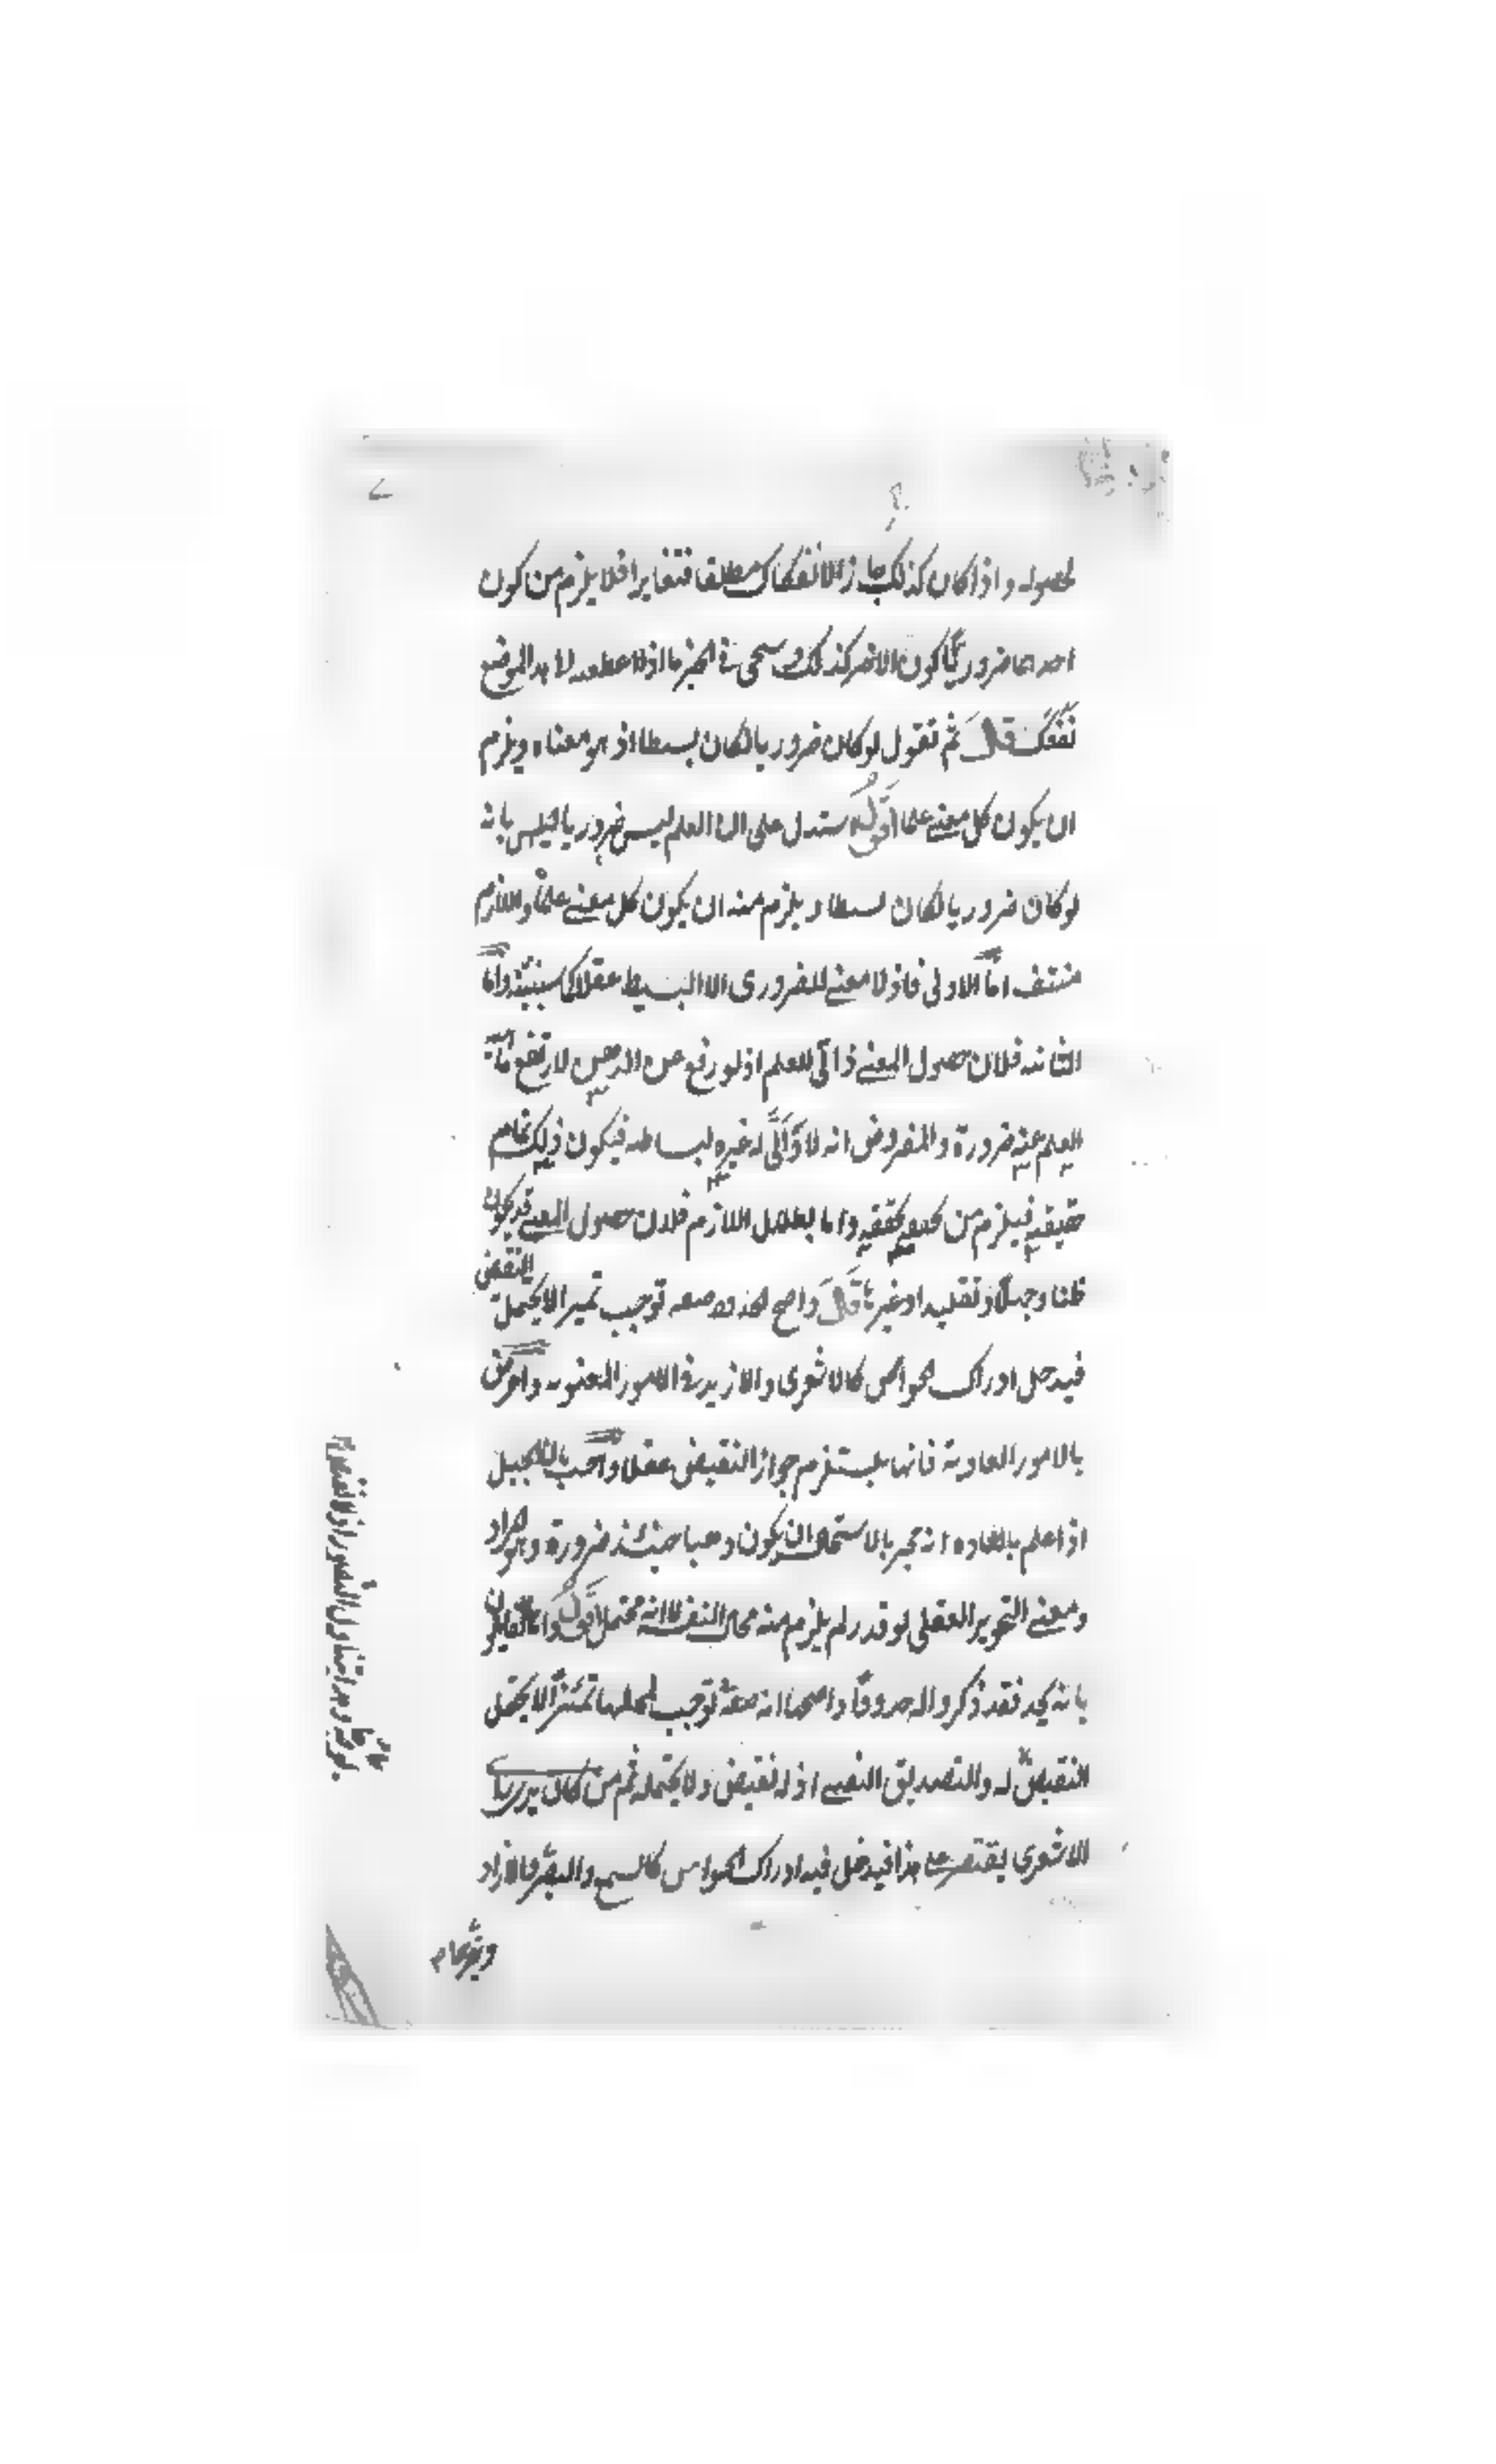 لحصوله واذا كان كذلك جاز الانفكاك مطلقا فتغايرا فلا يلزم من كون
احدهما ضروريا كون الاخر كذلك وسيجئ في الخبر ما اذا عطفته الى هذا الموضع
نفعك قال ثم نقول لو كان ضروريا لكان بسيطا اذ هو معناه ويلزم
ان يكون كل معنى علما اقول استدل على ان العلم ليس ضروريا بانه
لو كان ضروريا لكان بسيطا ويلزم منه ان يكون كل معنى علما واللازم
منتف اما الاولى فاذ لا معنى للضروري الا البسيط عقلا كما سنبينه واما
الثانية فلان حصول المعنى ذاتي للعلم اذ لو رفع عن الذهن لارتفع ماهية
العلم عنه ضرورة والمفروض انه لا ذاتي له غيره لبساطته فيكون ذلك تمام
حقيقته فيلزم من تحققه تحققه واما بطلان اللازم فلان حصول المعنى قد يكون
ظنا وجهلا وتقليدا وغيرها قال واصح الحدود صفة توجب تمييزا لا يحتمل النقيض
فيدخل ادراك الحواس كالاشعري والا زيد في الامور المعنوية واعترض
بالامور العادية فانها تستلزم جواز النقيض عقلا واجيب بان الجبل
اذا علم بالعادة انه حجر بالاستحال ان يكون ذهبا حينئذ ضرورة وهو المراد
ومعنى التجويز العقلي لو قدر لم يلزم منه محال لنفسه لا انه محتمل اقول واما القايلون
بانه يحد فقد ذكروا له حدودا واصحها انه صفة توجب لمحلها تمييزا لا يحتمل
النقيض له والتصديق اليقيني اذ له نقيض ولا يحتمله ثم من كان يرى راي
الاشعري يقتصر على هذا فيدخل فيه ادراك الحواس كالسمع والبصر والا زاد